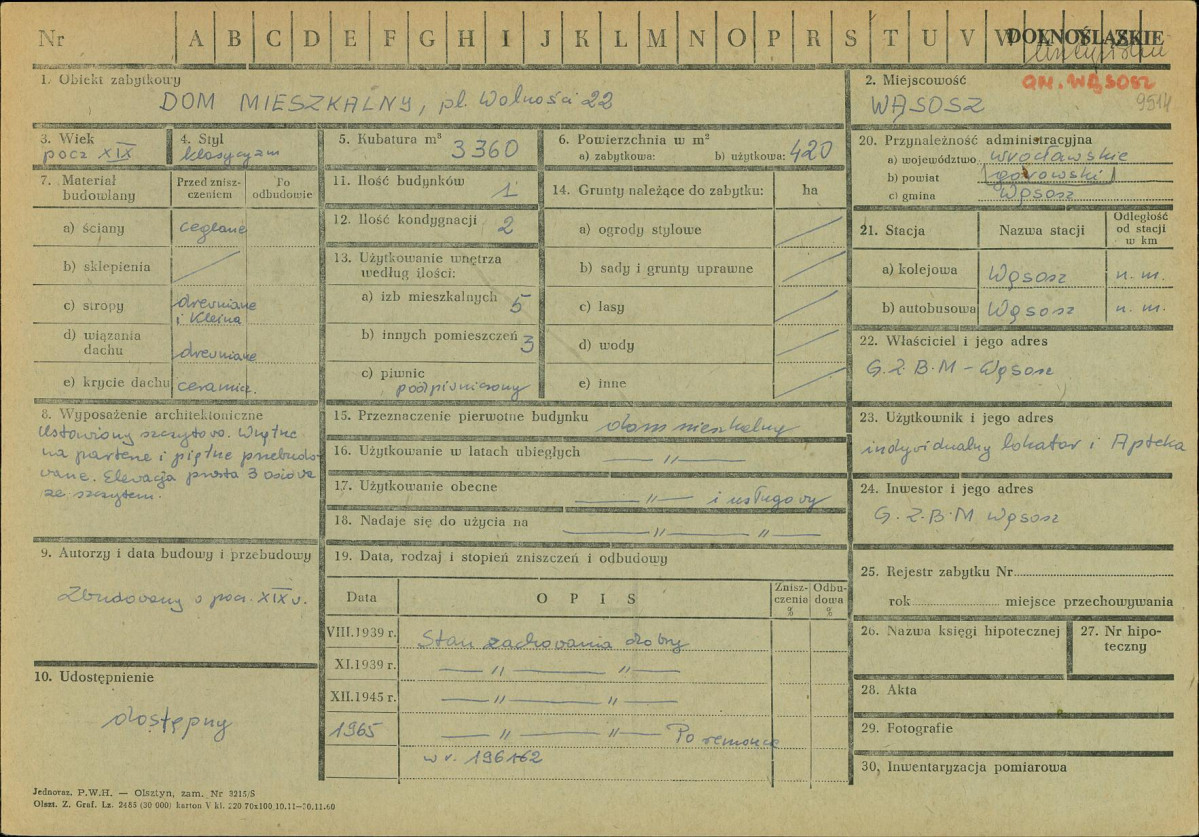 Nr A B C D E F G H I J K L M N O P R S T U V W DOLNOŚLĄSKIE
1. Obiekt zabytkowy
DOM MIESZKALNY, pl. Wolności 22
2. Miejscowość
GM. WĄSOSZ
WĄSOSZ
9514
3. Wiek
pocz XIX
4. Styl
klasycyzm
5. Kubatura m³ 3360
6. Powierzchnia w m²
a) zabytkowa: b) użytkowa: 420
20. Przynależność administracyjna
a) województwo wrocławskie
b) powiat górowski
c) gmina Wąsosz
7. Materiał budowlany
Przed zniszczeniem
Po odbudowie
a) ściany ceglane
b) sklepienia
c) stropy drewniane i Kleina
d) wiązania dachu drewniane
e) krycie dachu ceramicz.
11. Ilość budynków 1
12. Ilość kondygnacji 2
13. Użytkowanie wnętrza według ilości:
a) izb mieszkalnych 5
b) innych pomieszczeń 3
c) piwnic podpiwniczony
14. Grunty należące do zabytku: ha
a) ogrody stylowe
b) sady i grunty uprawne
c) lasy
d) wody
e) inne
21. Stacja Nazwa stacji Odległość od stacji w km
a) kolejowa Wąsosz n. m.
b) autobusowa Wąsosz n. m.
22. Właściciel i jego adres
G.Z.B.M - Wąsosz
8. Wyposażenie architektoniczne
Ustawiony szczytowo. Wnętrze
na parterze i piętrze przebudo
wane. Elewacja prosta 3 osiowa
ze szczytem.
15. Przeznaczenie pierwotne budynku dom mieszkalny
16. Użytkowanie w latach ubiegłych — // —
17. Użytkowanie obecne — // — i usługowy
18. Nadaje się do użycia na — // — // —
23. Użytkownik i jego adres
indywidualny lokator i Apteka
24. Inwestor i jego adres
G.Z.B.M Wąsosz
9. Autorzy i data budowy i przebudowy
Zbudowany o pocz. XIX w.
19. Data, rodzaj i stopień zniszczeń i odbudowy
Data OPIS Zniszczenia % Odbudowa %
VIII.1939 r. Stan zachowania dobry
XI.1939 r. — // — // —
XII.1945 r. — // — // —
1965 — // — // — Po remoncie
w r. 1961-62
25. Rejestr zabytku Nr
rok miejsce przechowywania
26. Nazwa księgi hipotecznej
27. Nr hipoteczny
10. Udostępnienie
dostępny
28. Akta
29. Fotografie
30. Inwentaryzacja pomiarowa
Jednoraz. P.W.H. — Olsztyn, zam. Nr 3215/S
Olszt. Z. Graf. Lz. 2485 (30 000) karton V kl. 220 70x100 10.11—30.11.60